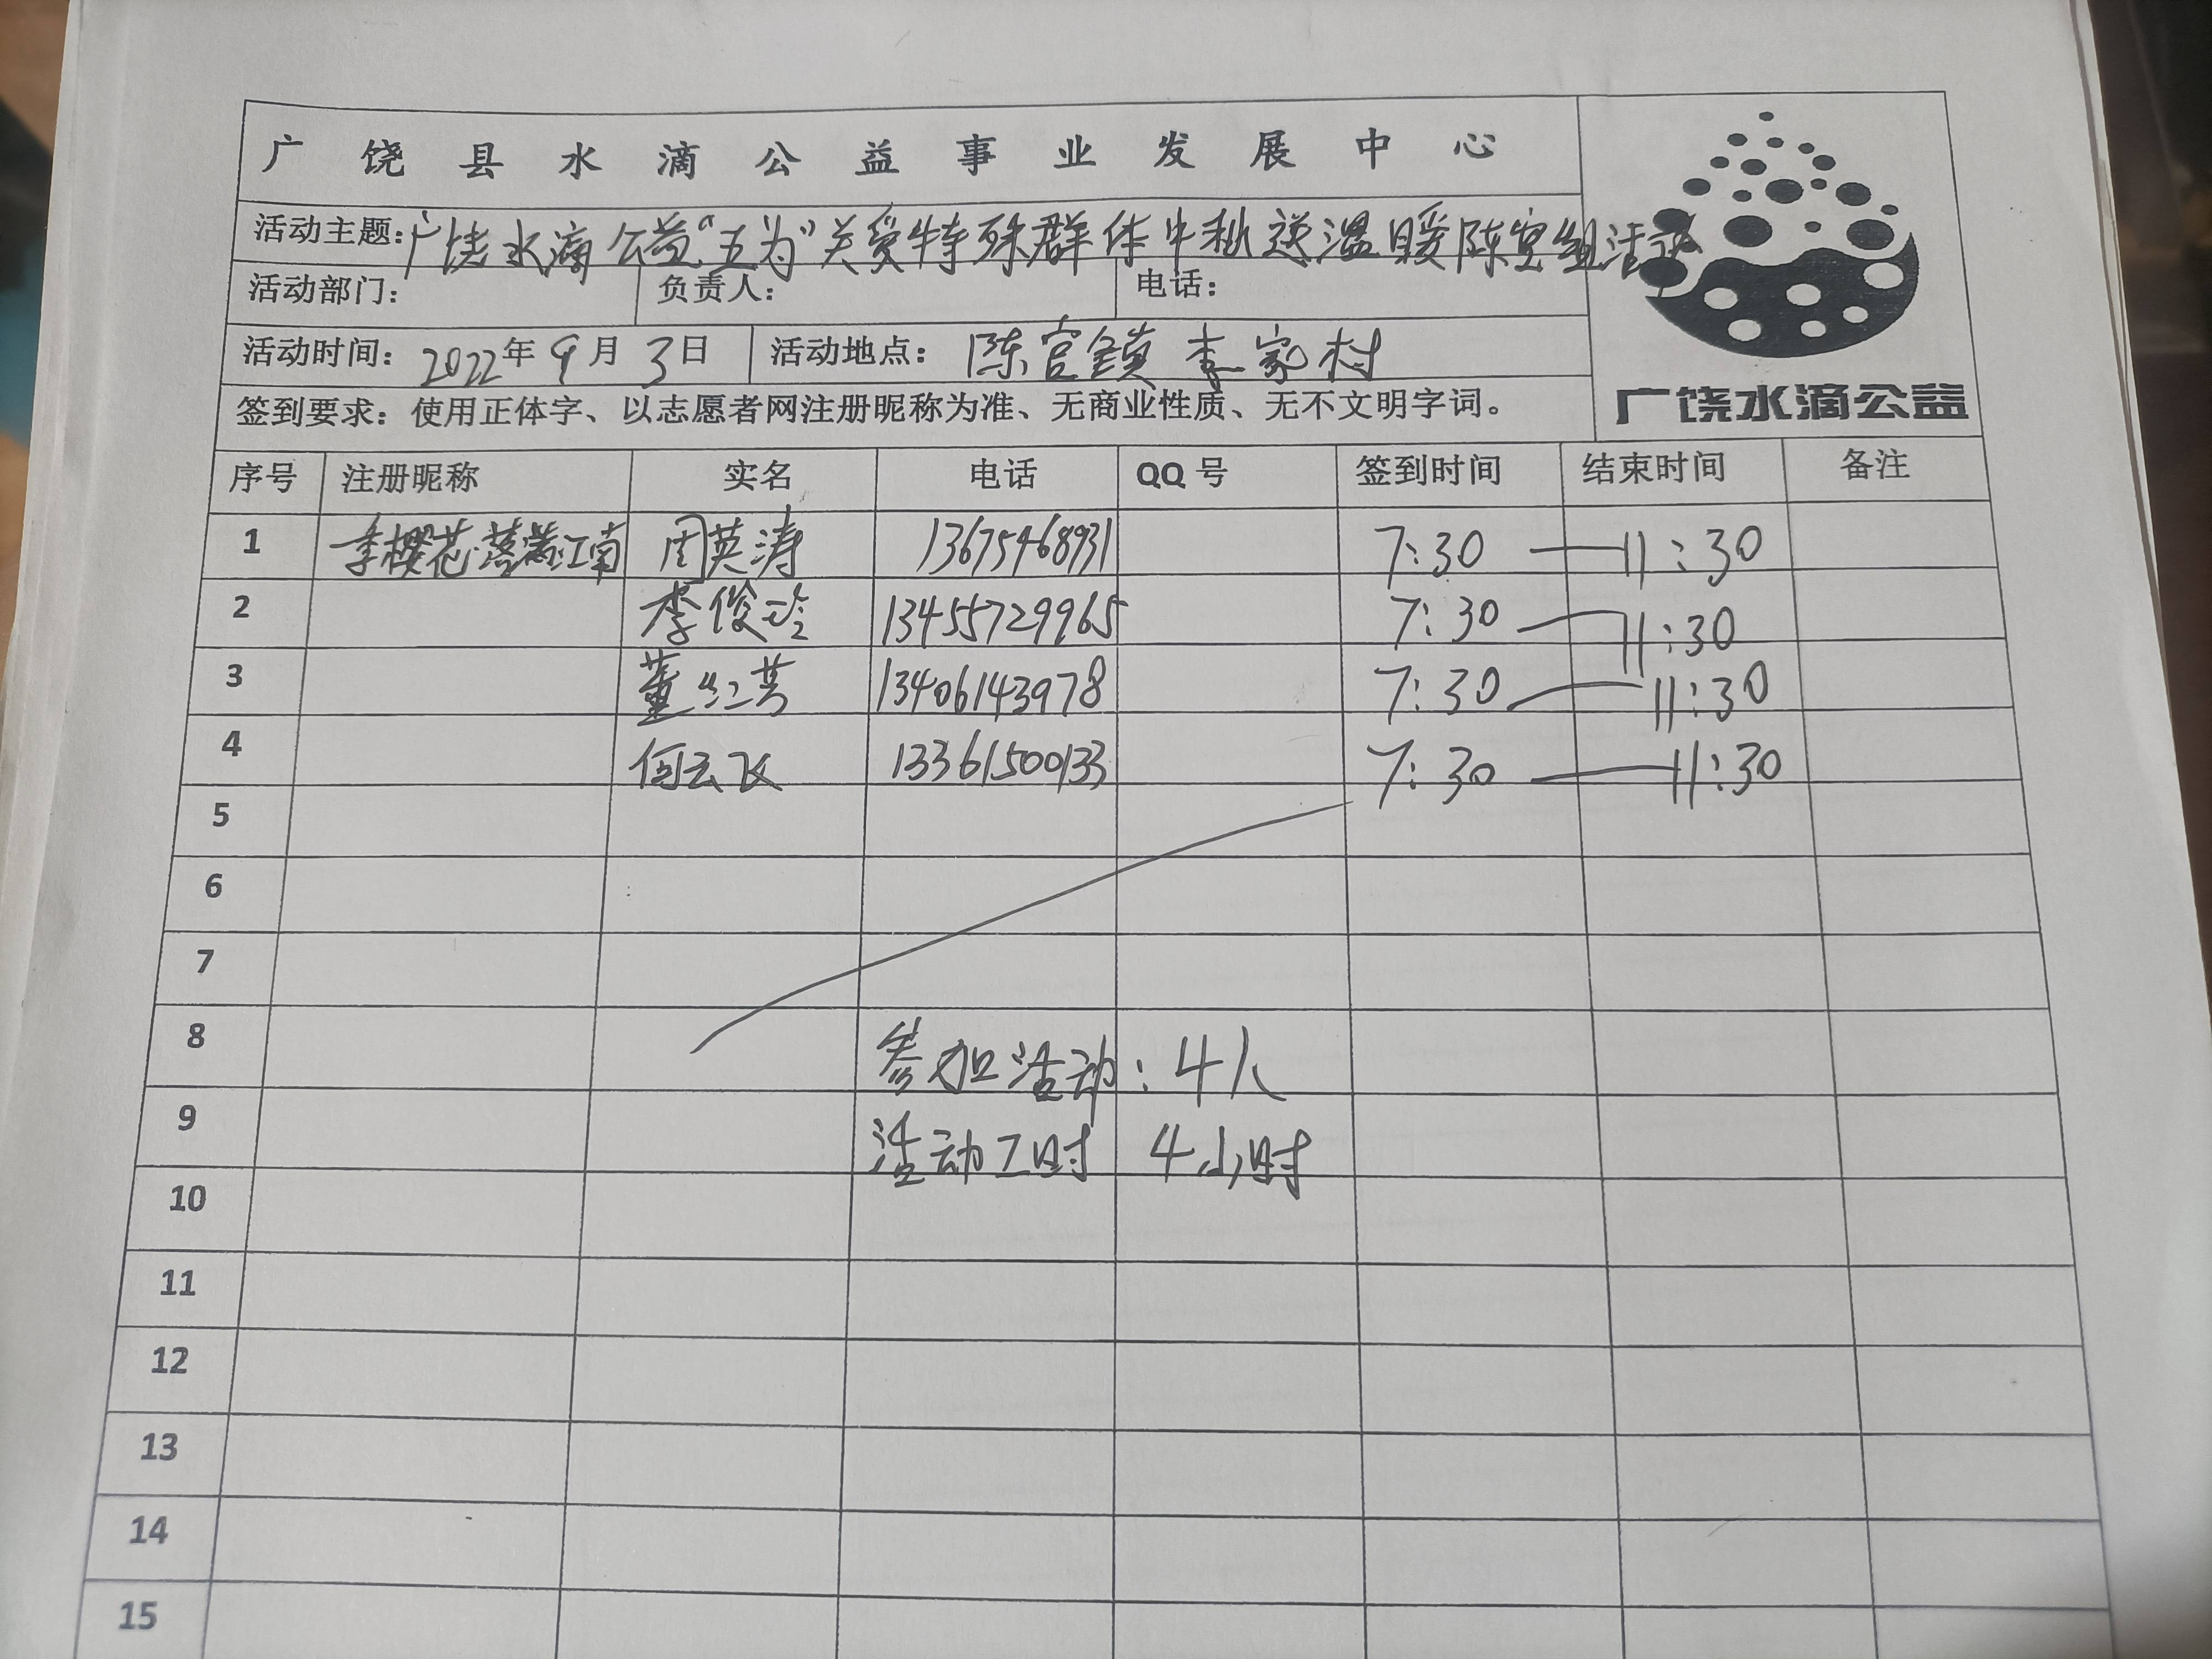 广饶县水滴公益事业发展中心
活动主题：广饶水滴公益“五为”关爱特殊群体中秋送温暖陈官组活动
活动部门： 负责人： 电话：
活动时间：2022年9月3日 活动地点：陈官镇李家村
签到要求：使用正体字、以志愿者网注册昵称为准、无商业性质、无不文明字词。
广饶水滴公益
序号 注册昵称 实名 电话 QQ号 签到时间 结束时间 备注
1 季樱花落满江南 周英涛 13675468931 7:30 — 11:30
2 李俊玲 13455729965 7:30 — 11:30
3 董红英 13406143978 7:30 — 11:30
4 何云飞 13361500133 7:30 — 11:30
5
6
7
8 参加活动：4人
9 活动工时 4小时
10
11
12
13
14
15